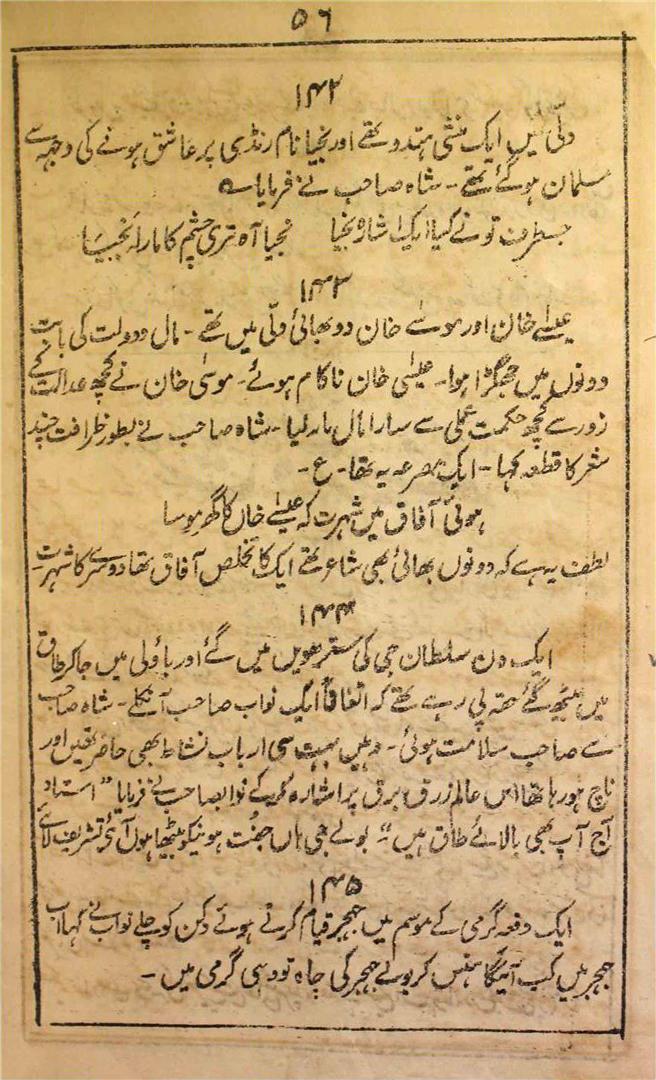 ۵۶
۱۴۲
دلّی میں ایک منشی ہندو تھے اور نجیا نام رنڈی پر عاشق ہونے کی وجہ سے
مسلمان ہوگئے تھے۔ شاہ صاحب نے فرمایا ؎
جسطرف تو نے کیا ایک اشارہ نجیا نجیا آہ تری چشم کا مارا نجیا
۱۴۳
عیسےٰ خان اور موسےٰ خان دو بھائی دلّی میں تھے۔ مال و دولت کی بابت
دونوں میں جھگڑا ہوا۔ عیسٰی خان ناکام ہوئے۔ موسٰی خان نے کچھ عدالت کے
زور سے کچھ حکمت عملی سے سارا مال مار لیا۔ شاہ صاحب نے بطور ظرافت چند
شعر کا قطعہ کہا۔ ایک مصرعہ یہ تھا۔ ع۔
ہوئی آفاق میں شہرت کہ عیسےٰ خاں کا گھر موسا
لطف یہ ہے کہ دونوں بھائی بھی شاعر تھے ایک کا تخلص آفاق تھا دوسرے کا شہرت
۱۴۴
ایک دن سلطان جی کی سترھویں میں گئے اور باؤلی میں جاکر طاق
میں بیٹھ گئے حقہ پی رہے تھے کہ اتفاقاً ایک نواب صاحب آ نکلے۔ شاہ صاحب
سے صاحب سلامت ہوئی۔ وہیں بہت سی ارباب نشاط بھی حاضر تھیں اور
ناچ ہو رہا تھا اس عالم زرق برق پر اشارہ کرکے نوابصاحب نے فرمایا "استاد
آج آپ بھی بالائے طاق ہیں"۔ بولے جی ہاں جفت ہونیکو بیٹھا ہوں آئی تشریف لائے
۱۴۵
ایک دفعہ گرمی کے موسم میں جھجر قیام کرتے ہوئے دکن کو چلے نواب نے کہا اب
جھجر میں کب آئیگا ہنس کر بولے جھجر کی چاہ تو وہی گرمی میں۔